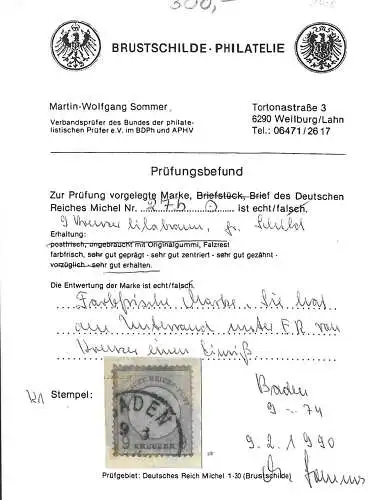 300,-
BRUSTSCHILDE · PHILATELIE
Martin-Wolfgang Sommer
Verbandsprüfer des Bundes der philate-
listischen Prüfer e.V. im BDPh und APHV
Tortonastraße 3
6290 Weilburg/Lahn
Tel.: 06471/2617
Prüfungsbefund
Zur Prüfung vorgelegte Marke, Briefstück, Brief des Deutschen
Reiches Michel Nr. 27b ist echt/falsch.
9 Kreuzer lilabraun, gr. Schild
Erhaltung:
postfrisch, ungebraucht mit Originalgummi, Falzrest
farbfrisch, sehr gut geprägt - sehr gut zentriert - sehr gut gezähnt -
vorzüglich - sehr gut erhalten.
Die Entwertung der Marke ist echt/falsch.
Farbfrische Marke. Sie hat
am Unterrand unter ER von
Kreuzer einen Einriß
Stempel:
Baden
9 - 74
9.2.1990
Sommer
BADEN
KREUZER
Prüfgebiet: Deutsches Reich Michel 1-30 (Brustschilde)